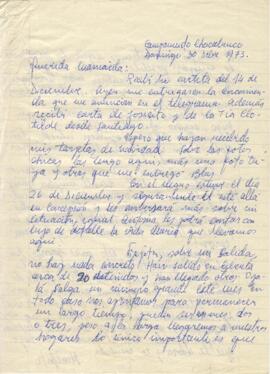 Campamento Chacabuco
Domingo 30 Dcbre 1973.
Querida Mamacita:
Recibí tu cartita del 14 de
Diciembre. Ayer me entregaron la encomien-
da que me anuncian en el telegrama. Además
recibí carta de Josesito y de la Tía Clo-
tilde desde Santiago.
Espero que hayan recibido
mis tarjetas de navidad. Sobre las fotos
chicas las tengo aquí, más una foto tu-
ya y otras que me entregó Blas.
Con el negro estuve el día
26 de Diciembre y seguramente él está allá
en Concepción y les entregará más sobre mi
situación, igual Antonio les podrá contar con
lujo de detalle la vida diaria que llevamos
aquí.
sobre mi salida,
no hay nada concreto. Han salido en libertad
cerca de 20 detenidos y han llegado otros. Ojalá
salga un número grande este mes en
todo caso hay que prepararnos para permanecer
un largo tiempo, puede ser un mes, dos
o tres, pero a la larga llegaremos a nuestros
hogares. Lo único importante es que